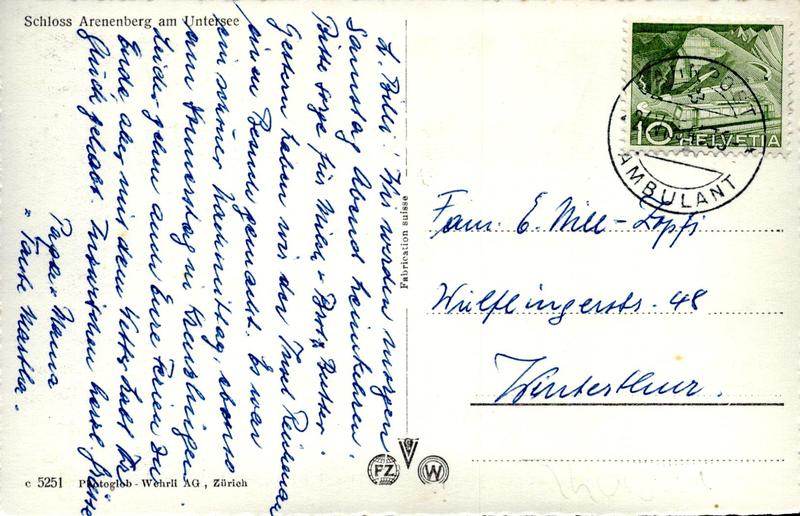 Schloss Arenenberg am Untersee
L. Willi! Wir werden morgen
Samstag Abend heimkehren.
Bitte sorge für Milch + Brot, Butter.
Gestern haben wir der Insel Reichenau
einen Besuch gemacht. Es war
ein schöner Nachmittag, ebenso
am Donnerstag in Kreuzlingen
Leider gehen auch Eure Ferien zu
Ende, aber mit dem Wetter habt Ihr
Glück gehabt. Inzwischen herzl. Grüsse
Papa + Mama
+ Tante Martha.
c 5251 Photoglob - Wehrli AG , Zürich
Fabrication suisse
PZ
W
10 HELVETIA
BAHNPOST
AMBULANT
Fam. E. Will-Zopfi
Wülflingerstr. 48
Winterthur.